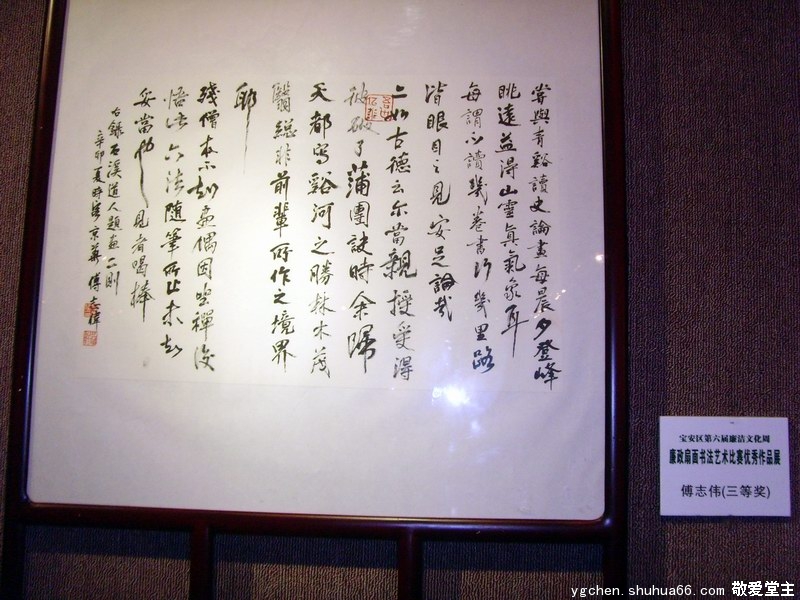 尝與青谿讀史論畫每晨夕登峰
眺遠益得山靈真氣象耳
每謂不讀幾卷書行幾里路
皆眼目之見安足論哉
二如古德云尔當親授受得
破了蒲團訣時余歸
天都寫谿河之勝林木茂
翳總非前輩所作之境界
耶
殘僧本不知畫偶因坐禪後
悟此六法隨筆所止未知
妥當也見者喝棒
右錄石溪道人題畫二則
辛卯夏時 京華 傅志偉
宝安区第六届廉洁文化周
廉政扇面书法艺术比赛优秀作品展
傅志伟(三等奖)
ygchen.shuhua66.com 敬爱堂主